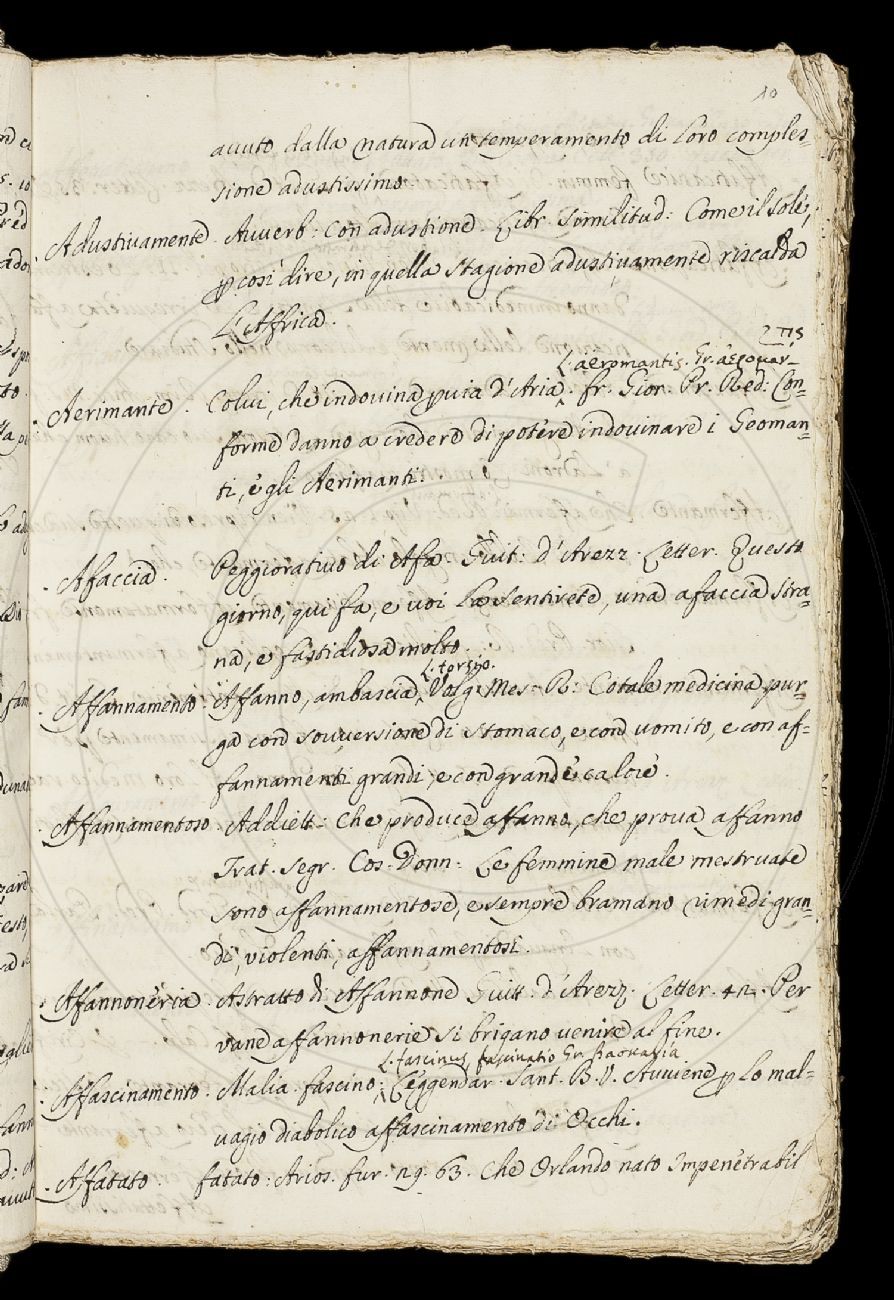 10
auuto dalla natura un temperamento di loro comples=
sione adustissimo
Adustivamente. Avverb: con adustione. Libr. Similitud: Come il Sole,
ꝑ così dire, in quella stagione adustivamente riscalda
L'Affrica.
L. aeromantis. Gr.
Aerimante. Colui, che indovina ꝑ via d'Aria. fr. Gior. Pr. Red: Con=
forme danno a credere di potere indovinare i Geoman=
ti, e gli Aerimanti.
Afaccia. Peggiorativo di Afa. Guit: d'Arezz. Letter. Questo
giorno, qui fa, e voi la sentirete, una afaccia stra=
na, e fastidiosa molto.
L. torsio.
Affannamento. Affanno, ambascia. Volg. Mes. R: Cotale medicina pur=
ga con souversione di stomaco, e con vomito, e con af=
fannamenti grandi, e con grande calore.
Affannamentoso. Addiett: Che produce affanno, che prova affanno
Trat. Segr. Cos. Donn: Le femmine male mestruate
sono affannamentose, e sempre bramano rimedi gran=
di, violenti, affannamentosi.
Affannoneria. Astratto di Affannone Guitt: d'Arezz. Letter. 42. Per
vane affannonerie si brigano venire al fine.
L. fascinus, fascinatio Gr. βασκανία
Affascinamento. Malia. fascino. Leggendar. Sant. B. V. Avviene ꝑ lo mal=
vagio diabolico affascinamento di Occhi.
Affatato. fatato. Arios. fur. 29. 63. Che Orlando nato Impenetrabil